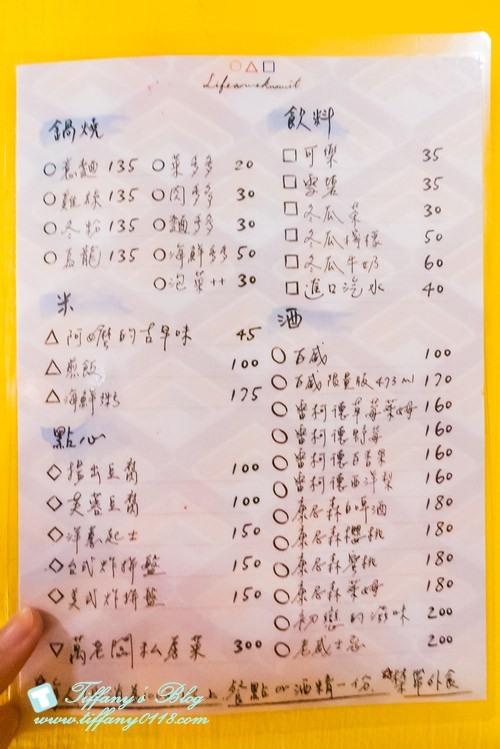 Lifeasweknowit
鍋燒
意麵 135
雞絲 135
冬粉 135
烏龍 135
菜多多 20
肉多多 30
麵多多 30
海鮮多多 50
泡菜++ 30
米
阿嬤的古早味 45
煎飯 100
海鮮粥 175
點心
揚出豆腐 100
芙蓉豆腐 100
洋蔥起士 150
台式炸拼盤 150
美式炸拼盤 150
萬老闆私房菜 300
飲料
可樂 35
雪碧 35
冬瓜茶 30
冬瓜檸檬 50
冬瓜牛奶 60
進口汽水 40
酒
百威 100
百威限量版 473ml 170
雷柯德草莓萊姆 160
雷柯德野莓 160
雷柯德百香果 160
雷柯德西洋梨 160
康尼森白啤酒 180
康尼森櫻桃 180
康尼森蜜桃 180
康尼森萊姆 180
初戀的滋味 200
老威士忌 200
上餐點or酒精一份 ☆禁帶外食
Tiffany's Blog
www.tiffany0118.com